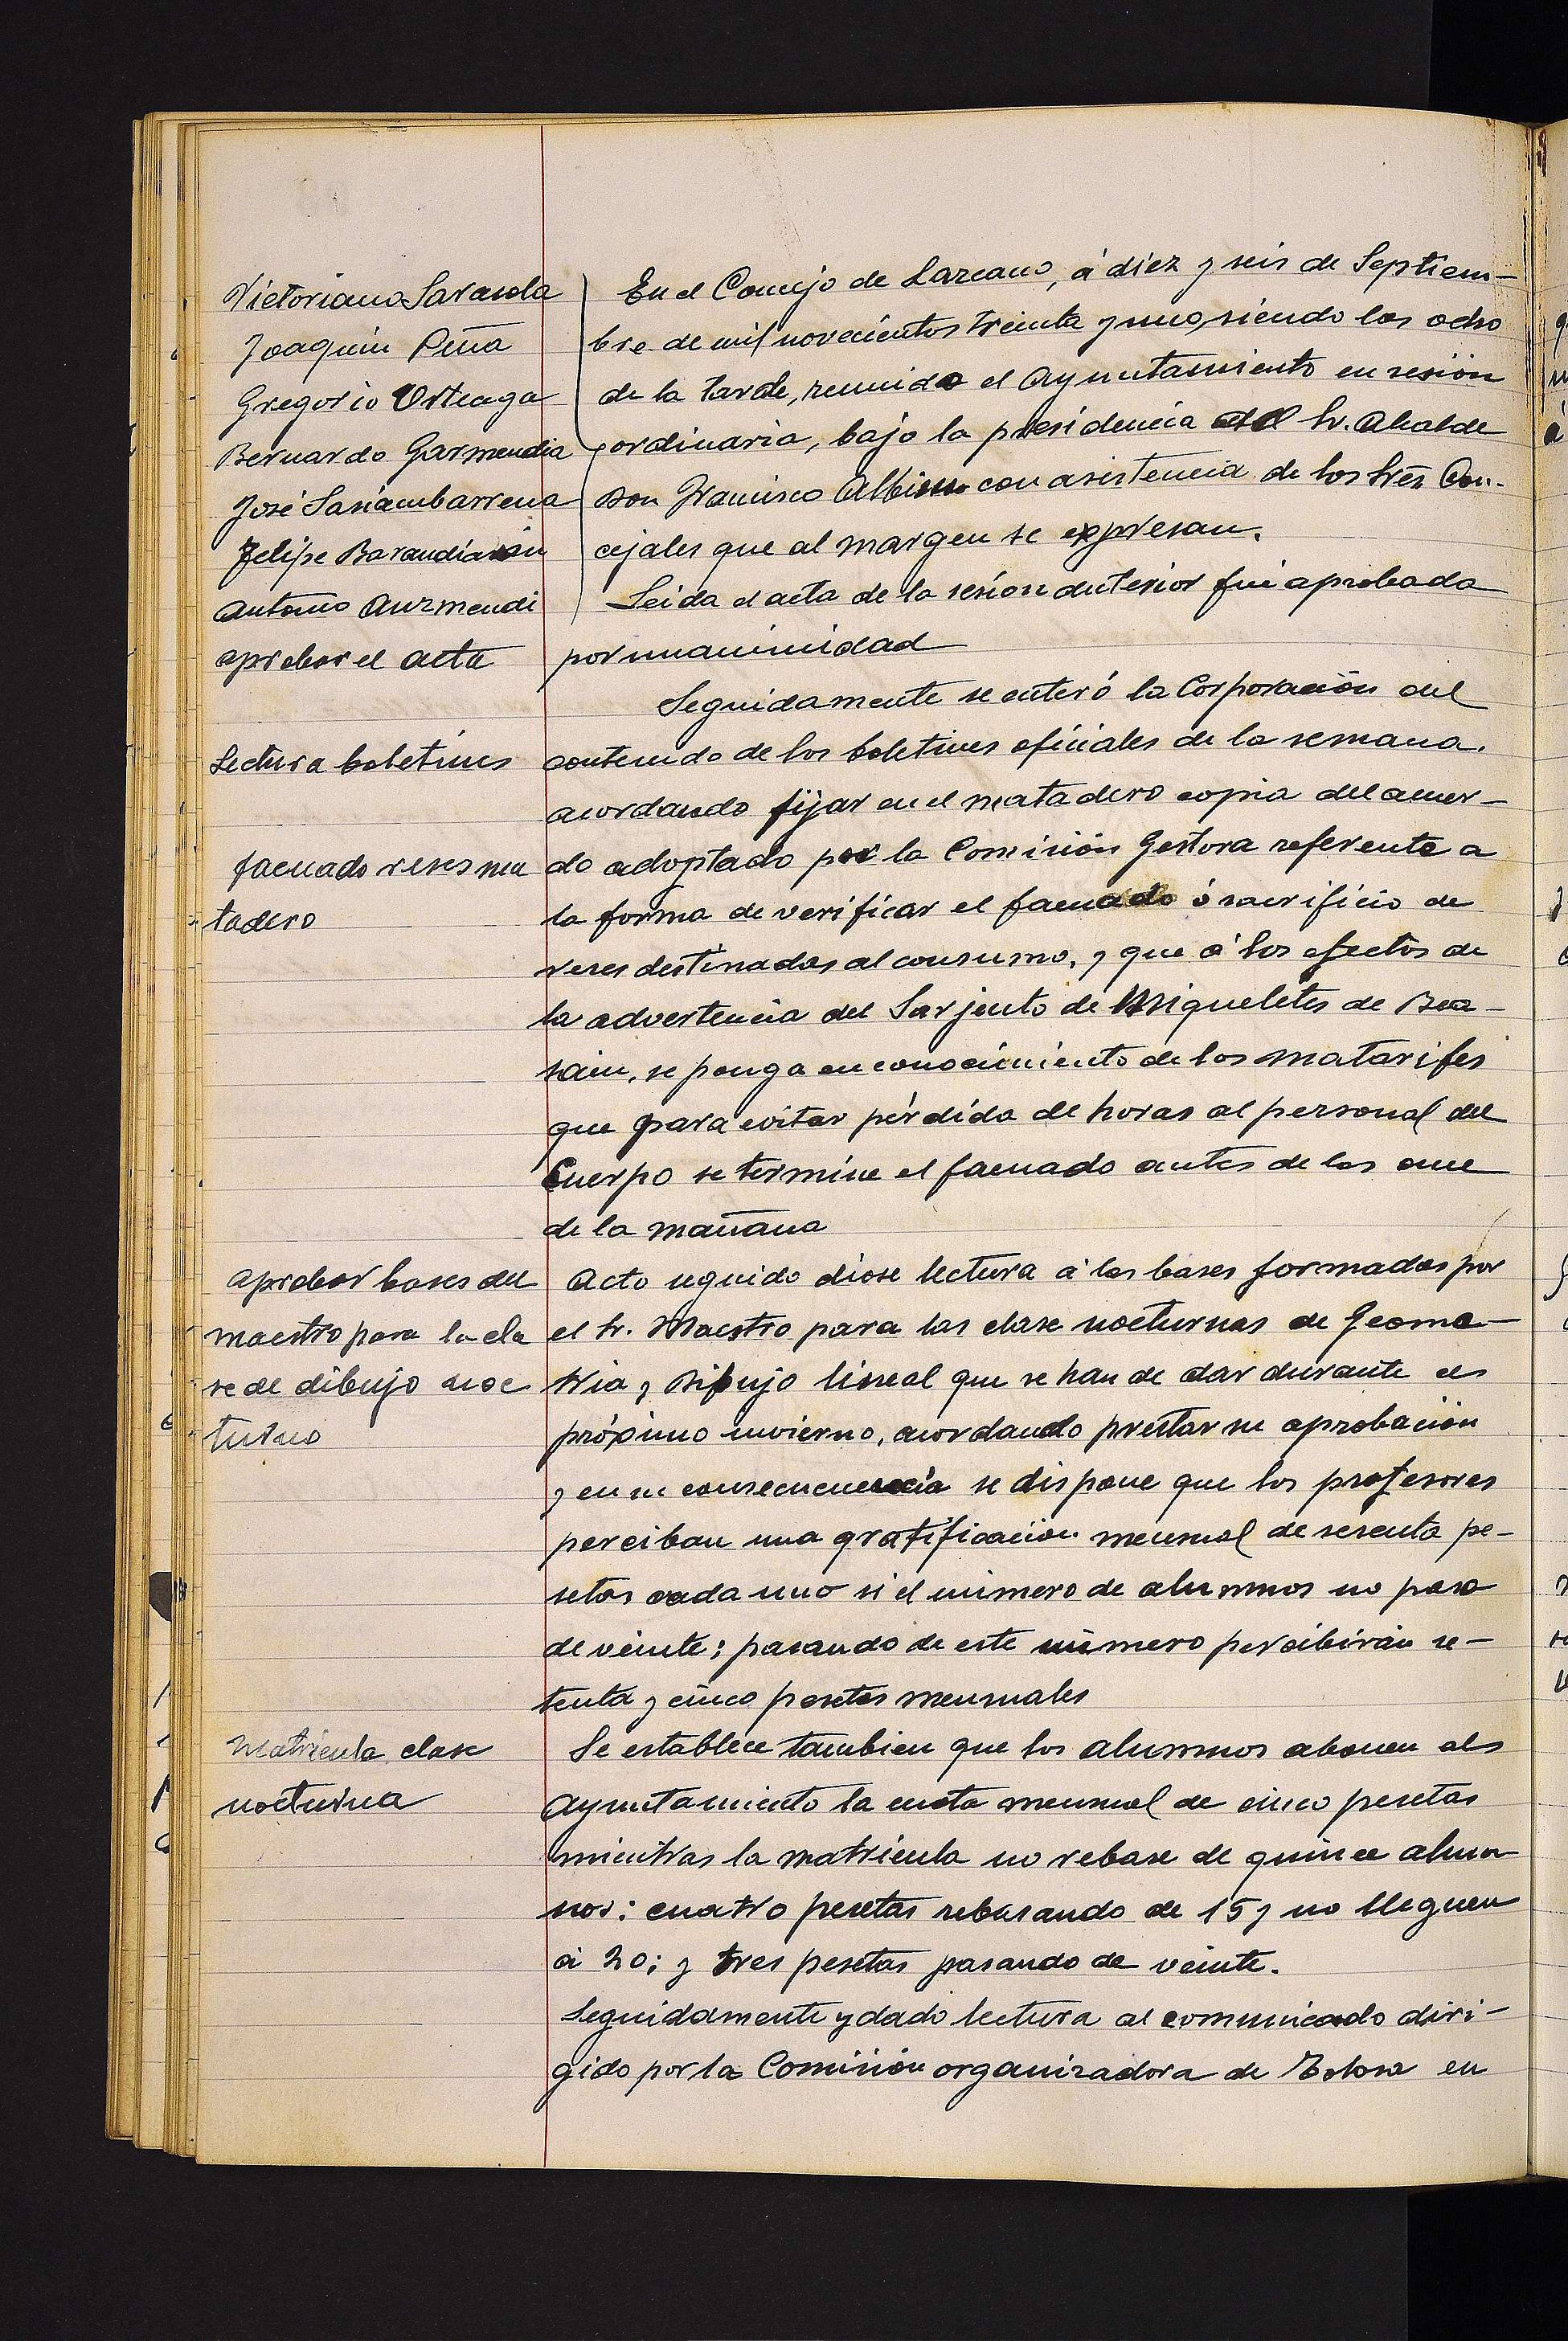 Victoriano Sarasola
Joaquín Peña
Gregorio Urteaga
Bernardo Garmendia
José Sasiambarrena
Felipe Barandiarán
Antonio Auzmendi
aprobar el acta
En el Concejo de Lazcano, á diez y seis de Septiem-
bre de mil novecientos treinta y uno, siendo las ocho
de la tarde, reunido el Ayuntamiento en sesión
ordinaria, bajo la presidencia del Sr. Alcalde
Don Francisco Albisu con asistencia de los tres Con-
cejales que al margen se expresan.
Leida el acta de la sesion anterior fué aprobada
por unanimidad
Seguidamente se enteró la Corporación del
Lectura boletines
contenido de los boletines oficiales de la semana.
acordando fijar en el matadero copia del acuer-
faenado reses ma
tadero
do adoptado por la Comisión Gestora referente a
la forma de verificar el faenado ó sacrificio de
reses destinadas al consumo, y que á los efectos de
la advertencia del Sarjento de Miqueletes de Bea-
sain, se ponga en conocimiento de los matarifes
que para evitar pérdida de horas al personal del
Cuerpo se termine el faenado antes de las once
de la mañana
aprobar bases del
maestro para la cla
se de dibujo noc
turno
Acto seguido diose lectura á las bases formadas por
el Sr. Maestro para las clase nocturnas de Geome-
tria y Dibujo lineal que se han de dar durante el
próximo invierno, acordando prestar su aprobación
y en su consecucuencia se dispone que los profesores
perciban una gratificación mensual de sesenta pe-
setas cada uno si el número de alumnos no pasa
de veinte; pasando de este número percibirán se-
tenta y cinco pesetas mensuales
Matricula clase
nocturna
Se establece tambien que los alumnos abonen al
Ayuntamiento la cuota mensual de cinco pesetas
mientras la matricula no rebase de quince alum-
nos: cuatro pesetas rebasando de 15 y no lleguen
á 20; y tres pesetas pasando de veinte.
Seguidamente y dado lectura al comunicado diri-
gido por la Comisión organizadora de Tolosa en